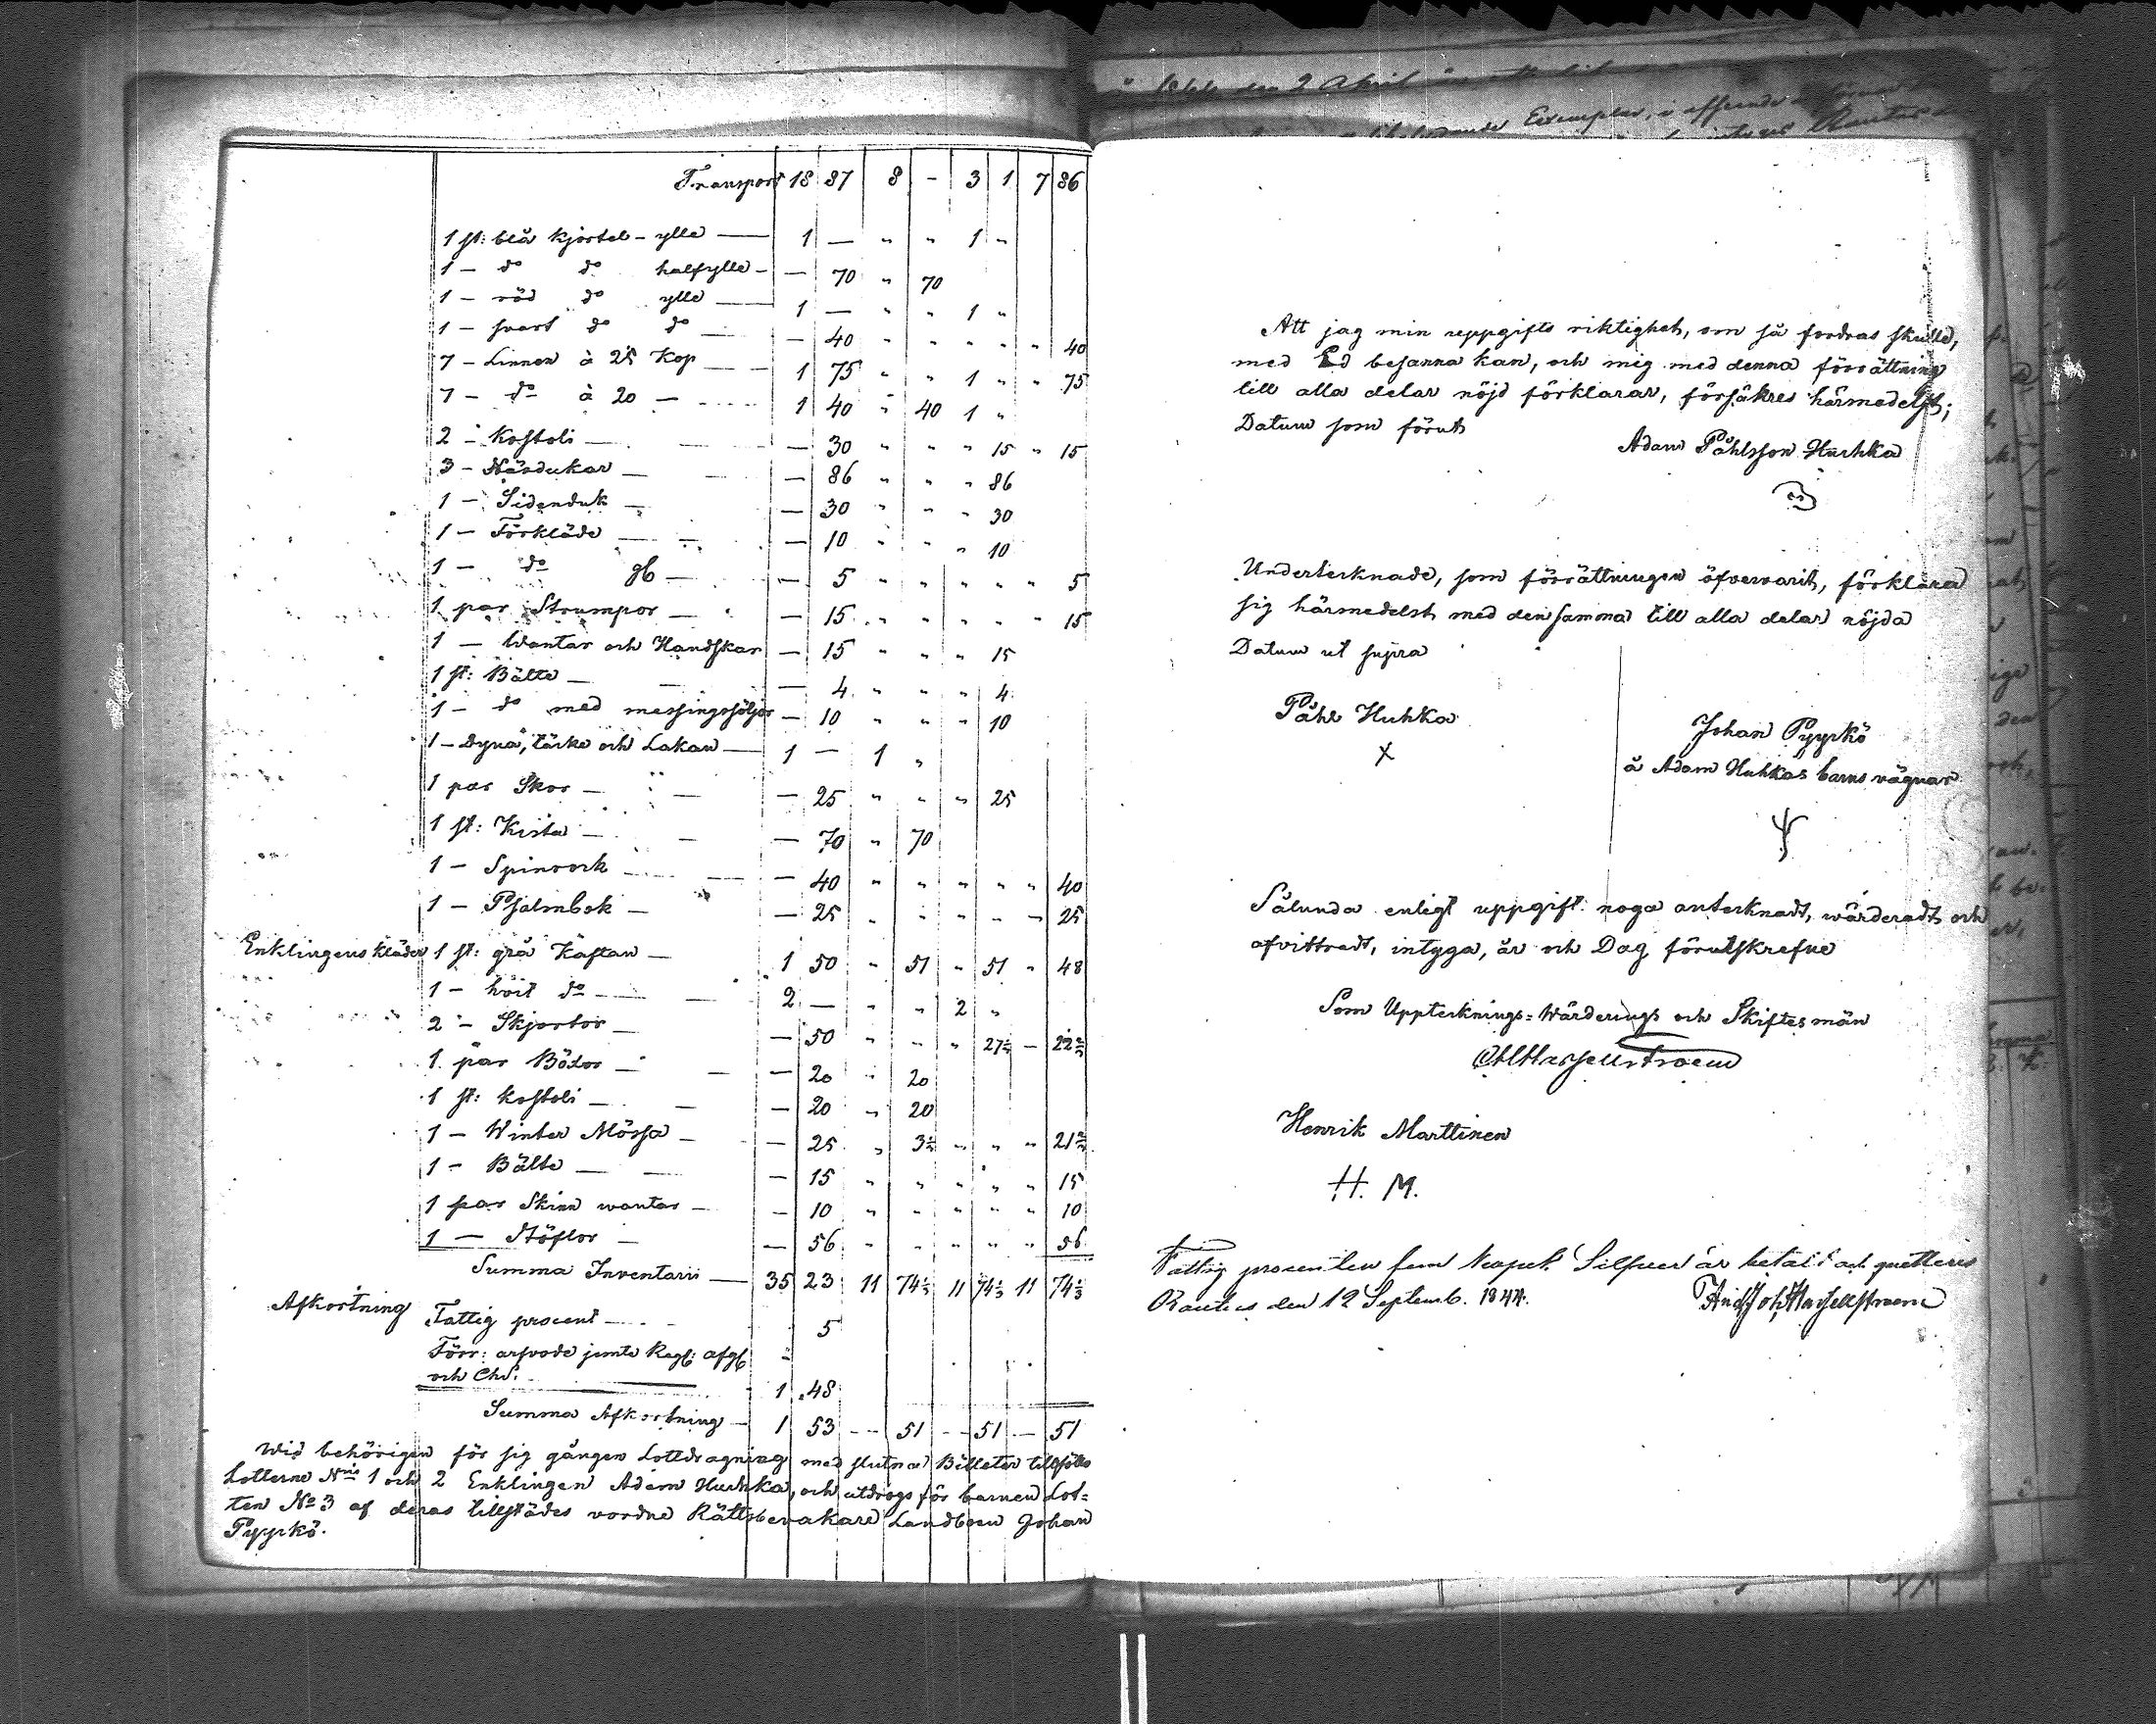 Transport 18 87 8 - 3 1 7 86
1 st: blå kjortel - ylle — 1 — " " 1 "
1 - do do halfylle - — 70 " 70
1 - röd do ylle — 1 — " " 1 "
1 - svart do do — — 40 " " " " " 40
7 - Linnen à 25 Kop — 1 75 " " 1 " " 75
7 - do à 20 — 1 40 " 40 1 "
2 - Kostoli — — 30 " " " 15 " 15
3 - Näsdukar — — 86 " " " 86
1 - Sidenduk — — 30 " " " 30
1 - Förkläde — — 10 " " " 10
1 - do gl — — 5 " " " " " 5
1 par Strumpor — — 15 " " " " " 15
1 — Wantar och Handskar — 15 " " " 15
1 st: Bälte — — 4 " " " 4
1 - do med messingssöljor — 10 " " " 10
1 - Dyna, täcke och Lakan — 1 — 1 "
1 par Skor — — 25 " " " 25
1 st: Kista — — 70 " 70
1 - Spinrock — — 40 " " " " " 40
1 - Psalmbok — — 25 " " " " — 25
Enklingens kläder 1 st: grå Kaftan — 1 50 " 51 " 51 " 48
1 - hvit do — 2 — " " 2 "
2 - Skjortor — — 50 " " " 27½ — 22½
1 par Böxor — — 20 " 20
1 st: kostoli — — 20 " 20
1 - Winter Mössa — — 25 " 3½ " " " 21½
1 - Bälte — — 15 " " " " " 15
1 par Skinn wantar — — 10 " " " " " 10
1 — Stöflor — — 56 " " " " " 56
Summa Inventarii — 35 23 11 74⅓ 11 74⅓ 11 74⅓
Afkortning Fattig procent — 5
Förr: arfvode jemte afgl
och Chs. 1 48
Summa Afkortning — 1 53 - - 51 - - 51 - 51
Wid behörigen för sig gången Lottdragning med slutna Billeter tillföllo
Lotterne Nris 1 och 2 Enklingen Adam Huhka, och utdrogs för barnen Lot=
ten No 3 af deras tillstädes vordne Rättsbevakare Landboen Johan
Pyyrkö.
Att jag min uppgifts riktighet, om så fordras skulle,
med Ed besanna kan, och mig med denna förrättning
till alla delar nöjd förklarar, försäkres härmedelst;
Datum som förut
Adam Påhlsson Huhka
Undertecknade, som förrättningen öfvervarit, förklara
sig härmedelst med densamma till alla delar nöjda
Datum ut supra
Påhl Huhka
X
Johan Pyyrkö
å Adam Huhkas barns vägnar
Sålunda enligt uppgift noga antecknadt, wärderadt och
afvittradt, intyga, år och Dag förutskrefne
Som Uppteknings- Wärderings och Skiftesmän
Henrik Marttinen
H. M.
Fattig procenten fem Kopek Silfver är betalt och quitteras
Rautus den 12 Septemb. 1844.